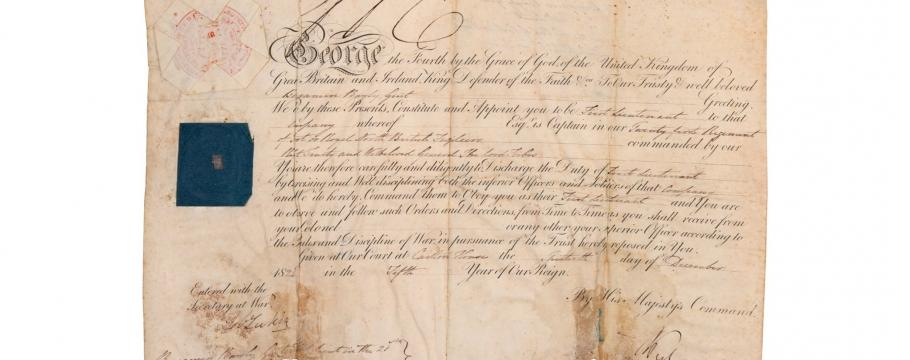 George the Fourth by the Grace of God, of the United Kingdom of
Great Britain and Ireland King, Defender of the Faith &c To Our Trusty & well beloved
Gent Greeting:
We do by these Presents, Constitute and Appoint you to be First Lieutenant to that
Company whereof Esqr. is Captain in our Twenty first Regiment
of Foot or Royal North British Fusiliers commanded by our
General The Lord Forbes
You are therefore carefully and diligently to Discharge the Duty of First Lieutenant
by exercising and Well disciplining both the inferior Officers and Soldiers of that Company
and We do hereby Command them to Obey you as their First Lieutenant and You are
to observe and follow such Orders and Directions, from Time to Time as you shall receive from
your Colonel or any other your superior Officer according to
the Rules and Discipline of War, in pursuance of the Trust hereby reposed in You.
Given at Our Court at Carlton House the day of December
182 in the Fifth Year of Our Reign.
Entered with the
Secretary at War
By His Majesty's Command.